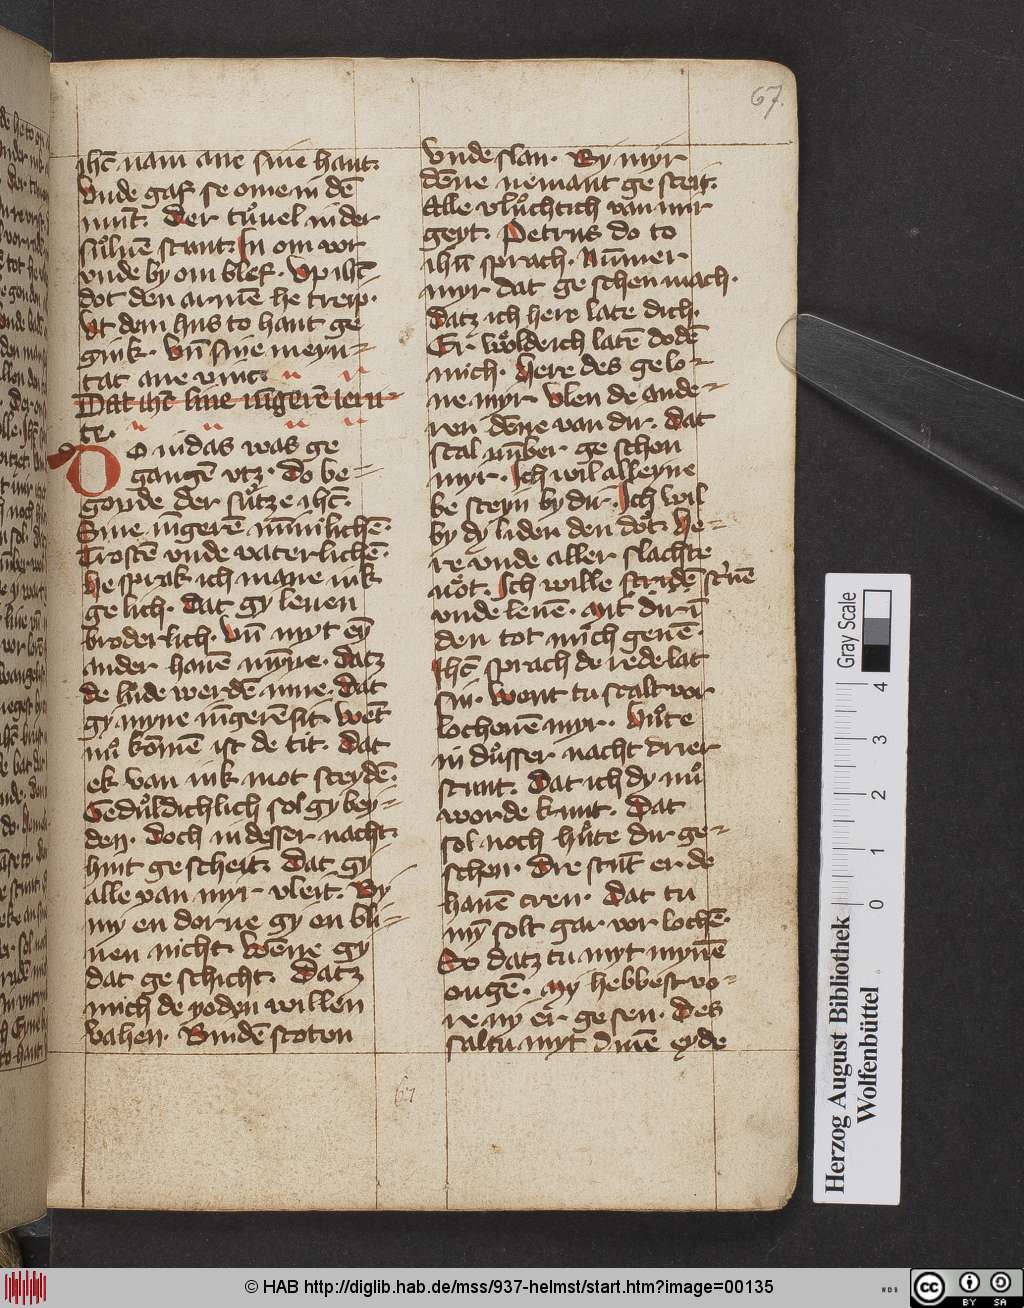 67.
ihc̄ nam ane sine hant.
Vnde gaf se ome in dē
munt. Der tuͦuel in der
suͦluē stunt. In om wir
vnde by om blef. Vp ihc̄
dot den armē he treip.
Vt dem hus to hant ge
gink. Vn̄ sine meyn-
tat ane vinc.
Dat ihc̄ sine iūgerē leru
te.
DO iudas was ge
gangē vtz. Do be-
gonde der suͦtze ihc̄.
Sine iūgerē minnichlichē.
Trostē vnde vaterlichē.
He sprak ich mane iuk
ge lich. Dat gy leuen
broderlich. Vn̄ myt eȳ
ander hauē mȳne. Datz
de lude werdē inne. Dat
gy myne iūgerē sit. Wēt
nuͦ komē ist de tit. Dat
ek van iuk mot sceydē.
Geduͦldichlich sol gy bey-
den. Doch in desser nacht.
hint ge scheit. Dat gy
alle van myr vleit. By
my en dorne gy en bli-
uen nicht. Wēne gy
dat ge schicht. Datz
mich de yoden willen
vahen. Bindē stoten
Vnde slan. By myr
dēne nemant ge steit.
Alle vluͦchtich van mir
geyt. Petrus do to
ihū sprach. Nūmer
myr dat ge schen mach.
Datz ich here late dich.
Er woͤlde ich latē dodē
mich. Here des gelo-
ue myr vlen de ande-
ren dēne van dir. Dat
scal nūber ge schen
myr. Ich wil alleyne
be steyn by dir. Ich wil
by dy liden den doͤt. He-
re vnde aller slachte
noͤt. Ich wille stridē st'uē
vnde leuē. Mit dir ī
den tot mich geuē.
Ihc̄ sprach de rede lat
sin. Went tu scalt vor
lochenē myr. Huͦte
in duͦsser nacht drier
stunt. Dat ich dy nuͦ
worde kunt. Dat
sol noch huͦte dir ge-
schen. Dre stūt er de
hanē creu. Dat tu
mȳ solt gar vor lochē.
Do datz tu myt mynē
ougē. My hebbest vo-
re ny er ge sen. Des
saltu myt dinē eyde
67
Gray Scale
0 1 2 3 4
Herzog August Bibliothek
Wolfenbüttel
© HAB http://diglib.hab.de/mss/937-helmst/start.htm?image=00135
WDB
cc BY SA